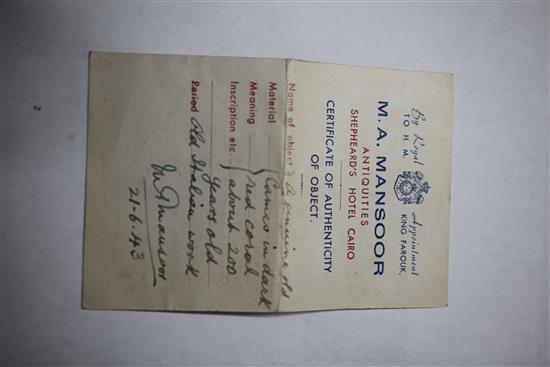 By Royal Appointment
TO H. M. KING FAROUK.
M. A. MANSOOR
ANTIQUITIES
SHEPHEARD'S HOTEL CAIRO
CERTIFICATE OF AUTHENTICITY
OF OBJECT.
Name of object } A genuine old
Material Cameo in dark
Meaning red coral
Inscription etc about 200
years old
Period Old Italian work
M A Mansoor
21-6.43